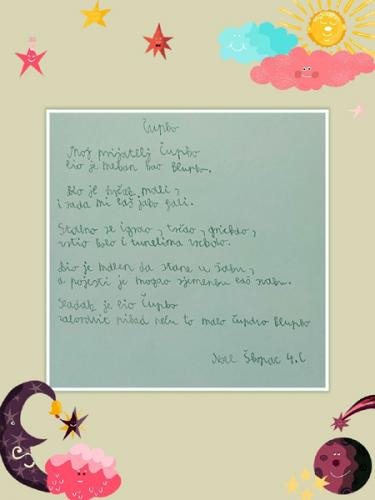 Čupko
Moj prijatelj Čupko
bio je mekan kao klupko.
Bio je hrčak mali,
i sada mi baš jako fali.
Stalno se igrao, trčao, grickao,
vrtio kolo i tunelima
Bio je malen da stane u šaku,
a pojesti je mogao sjemenku baš svaku.
Sladak je bio Čupko
zaboravit nikad neću to malo čupavo klupko
Noel Škopac 4.c